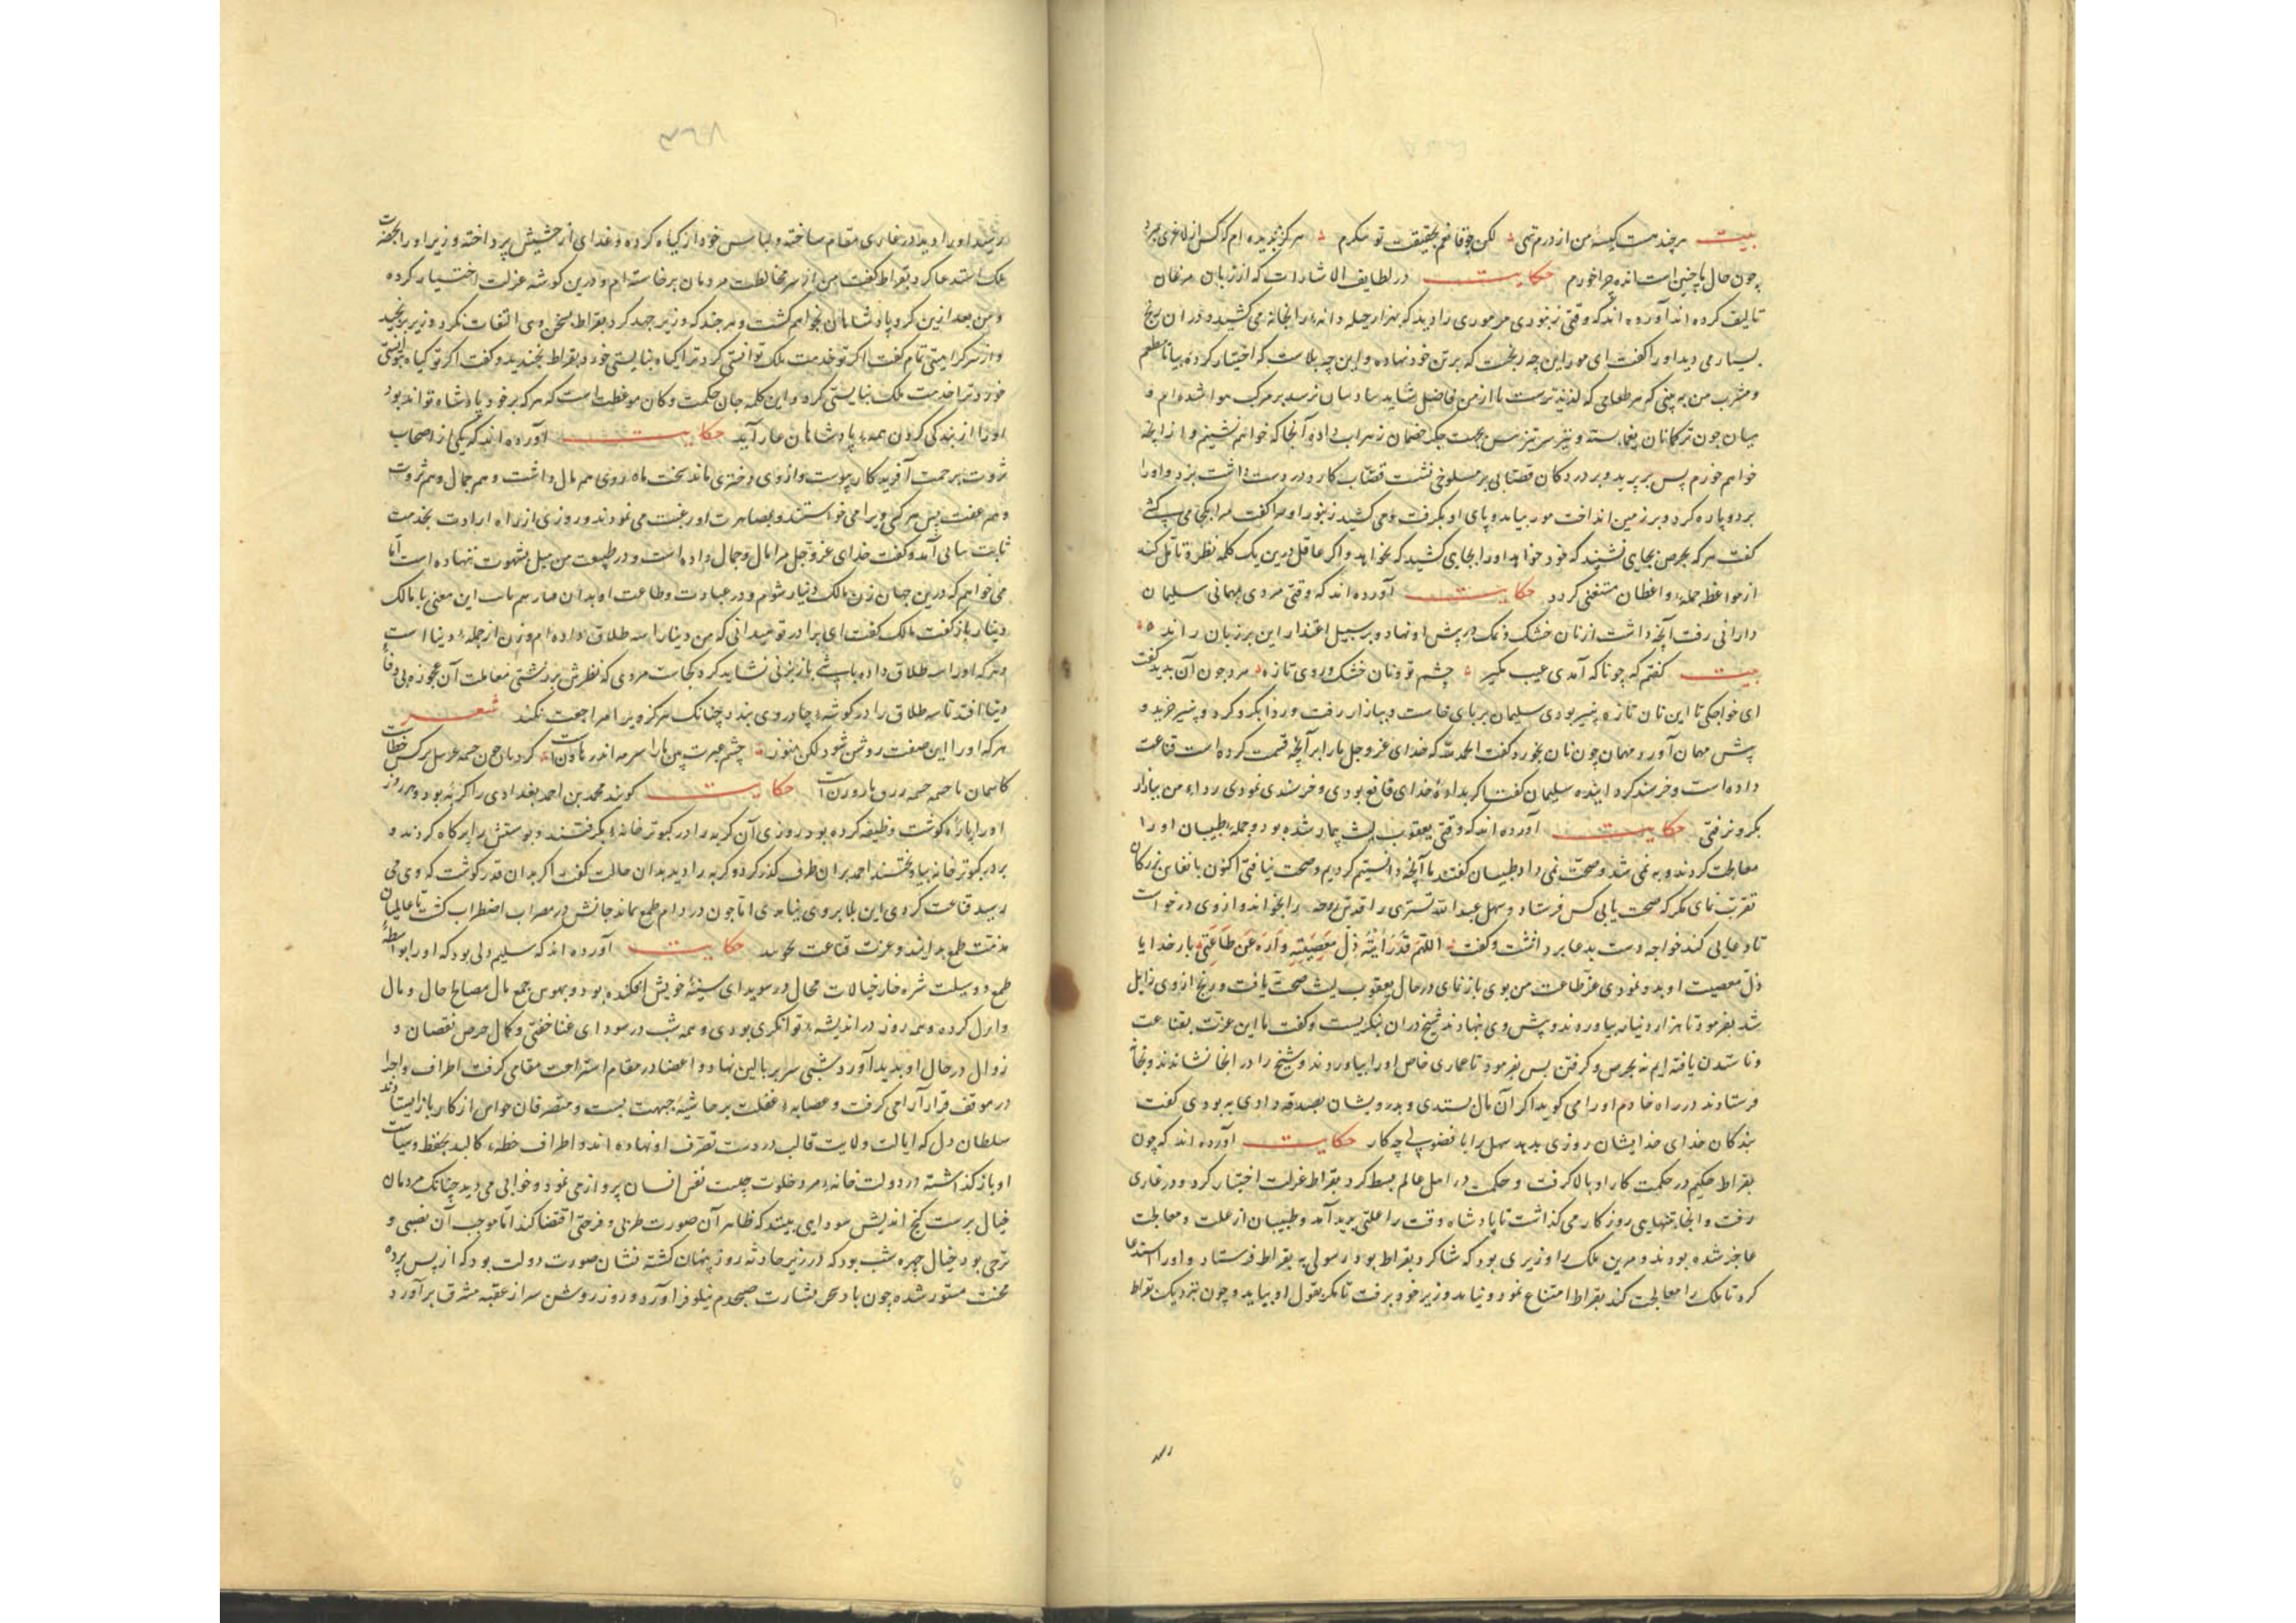 بیت هر چند هست کیسهٔ من از درم تهی لکن چو قانعم بحقیقت توانکرم هرکز ندیده ام که کس از لاغری بمرد
چون حال با چنین است انده چرا خورم حکایت در لطایف الاشارات که از زبان مرغان
تالیف کرده اند آورده اند که وقتی زنبوری مر موری را دید که بهزار حیله دانه را بخانه می کشید و در ان رنج
بسیار می دید او را گفت ای مور این چه رنجست که بر تن خود نهاده و این چه بلاست که اختیار کردهٔ بیا تا مطعم
و مشرب من به بینی که هر طعامی که لذیذ ترست تا از من فاضل نیاید بپادشاهان نرسد بر مرکب هوا شده ام و
میان چون ترکمانان یغما بسته و نیز سر تیز بس بجهت جکر خصمان زهراب داده آنجا که خواهم نشینم و از انچه
خواهم خورم پس بر پرید و بر در دکان قصابی بر مسلوخی نشست قصاب کارد در دست داشت بزد و او را
بدو پاره کرد و بر زمین انداخت مور بیامد و پای او بگرفت و می کشید زنبور او را گفت مرا بکجا می کشی
گفت هر که بحرص بجای نشیند که خود خواهد او را بجای کشند که نخواهد و اگر عاقل درین یک کلمه نظره تامل کند
از مواعظه جملهٔ واعظان مستغنی گردد حکایت آورده اند که وقتی مردی بمهمانی سلیمان
دارانی رفت آنچه داشت از نان خشک و نمک در پیش او نهاد و بر سبیل اعتذار این بر زبان راند
بیت گفتم که چو ناکه آمدی عیب مکیر چشم تر و نان خشک و روی تازه مرد چون آن بدید گفت
ای خواجکی تا این نان تازه پنیر بودی سلیمان بر پای خاست و ببازار رفت و ردا بگرو کرد و پنیر خرید و
پیش مهمان آورد مهمان چون نان بخورد گفت الحمد لله که خدای عز و جل ما را بر آنچه قسمت کرده است قناعت
داده است و خرسند کردانیده سلیمان گفت اگر بدادهٔ خدای قانع بودی و خرسندی نمودی رداء من ببازار
بگرو نرفتی حکایت آورده اند که وقتی یعقوب لیث بیمار شده بود و جملهٔ طبیبان او را
معالجت کردند و به نمی شد و صحت نمی داد طبیبان گفتند ما آنچه دانستیم کردیم و صحت نیافتی اکنون بانفاس بزرکان
تقرب نمای مکر که صحت یابی کس فرستاد و سهل عبد الله تستری را قدس روحه را بخواند و از وی درخواست
تا دعایی کند خواجه دست بدعا برداشت و گفت اللهم قد رأیته ذل معصیته و اره عن طاعتی بار خدایا
ذل معصیت او بدو نمودی عز طاعت من بوی باز نمای در حال یعقوب لیث صحت یافت و رنج از وی زایل
شد بفرمود تا هزار دینار بیاوردند و پیش وی بنهادند شیخ در ان ننکریست و گفت ما این عزت بقناعت
و ناستدن یافته ایم نه بحرص و گرفتن پس بفرمود تا عماری خاص او را بیاوردند و شیخ را در انجا نشاندند و بخانه
فرستادند در راه خادم او را می گوید اگر آن مال بستدی و بدرویشان بصدقه دادی به بودی گفت
بندکان خدای خدایشان روزی بدهد سهل را با فضولی چه کار حکایت آورده اند که چون
بقراط حکیم در حکمت کار او بالا گرفت و حکمت در اهل عالم بسط کرد بقراط عزلت اختیار کرد و در غاری
رفت و انجا تنهایی روزکار می گذاشت تا پادشاه وقت را علتی پدید آمد و طبیبان از علت و معالجت
عاجز شده بودند و مر این ملک را وزیری بود که شاکرد بقراط بود رسولی به بقراط فرستاد و او را استدعا
کرد تا ملک را معالجت کند بقراط امتناع نمود و نیامد وزیر خود برفت تا مگر بقول او بیاید و چون نزدیک بقراط
رسید او را دید در غاری مقام ساخته و لباس خود از گیاه کرده و غدای از حشیش پرداخته وزیر او را بحضرت
ملک استدعا کرد بقراط گفت من از سر مخالطت مردمان برخاسته ام و درین گوشه عزلت اختیار کرده
و من بعد ازین گرد پادشاهان نخواهم گشت و هر چند که وزیر جهد کرد بقراط بسخن وی التفات نکرد وزیر برنجید
و از سر کرامیتی تمام گفت اگر تو خدمت ملک توانستی کرد ترا گیاه نبایستی خورد بقراط بخندید و گفت اگر تو گیاه توانستی
خورد ترا خدمت ملک نبایستی کرد و این کلمه جان حکمت و کان موعظت است که هر که بر خود پادشاه تواند بود
او را از بندگی کردن همهٔ پادشاهان عار آید حکایت آورده اند که یکی از اصحاب
ثروت برحمت آفریدکار پیوست و از وی دختری ماند سخت ماه روی هم مال داشت و هم جمال و هم ثروت
و هم عفت پس هر کس ویرا می خواستند و بمصاهرت او رغبت می نمودند و روزی از راه ارادت بخدمت
ثابت بنانی آمد و گفت خدای عز و جل مرا مال و جمال داده است و در طبیعت من میل بشهوت ننهاده است اما
می خواهم که درین جهان زن مالک دینار شوم و در عبادت و طاعت او بدان هم ثابت این معنی با مالک
دینار باز گفت مالک گفت ای برادر تو میدانی که من دینا را سه طلاق داده ام و زن از جملهٔ دنیا است
و هر که او را سه طلاق داده باشی باز بزنی نشاید کرد کجاست مردی که نظرش بر زشتی معاملت آن عجوزه بی وفاء
دینا افتد تا سه طلاق را در گوشهٔ چادر وی بندد چنانک هرگز ویرا مراجعت نکند شعر
هر که او را این صفت روشن شود لکن هنوز چشم عبرت بین ما را سرمه اندر هاون است
حکایت گویند محمد بن احمد بغدادی را گربهٔ بود و هر روز
او را پارهٔ گوشت وظیفه کرده بود روزی آن گربه را در کبوتر خانهٔ بگرفتند و پوستش را پر کاه کردند و
بر در کبوتر خانه بیاویختند احمد بر ان طرف گذر کرد و گربه را دید بدان حالت گفت اگر بدان قدر گوشت که وی می
رسید قناعت کردی این بلا بر وی نیامدی اما چون در دام طمع بماند جانش در مضراب اضطراب گشت تا عالمیان
مذلت طمع بدانند و عزت قناعت بجویند حکایت آورده اند که سلیم دلی بود که او را بواسطهٔ
طمع و وسیلت شره خار خیالات محال در سویدای سینهٔ خویش افکنده بود و بهوس جمع مال مصالح حال و مال
و ازل کرده و همه روز در اندیشهٔ توانگری بودی و همه شب در سودای غنا خفتی و کمال حرص نقصان و
زوال در حال او پدید آورد شبی سر بر بالین نهاد و اعضا در مقام استراحت مقامی گرفت اطراف و اجزا
در موقف قرار آرامی گرفت و عصابهٔ غفلت بر حاشیهٔ جبهت ببست و متصرفان حواس از کار باز ایستادند
سلطان دل که ایالت ولایت قالب در دست تصرف او نهاده اند و اطراف خطهٔ کالبد بحفظ و سیاست
او باز گذاشته در دولت خانهٔ مرد خلوت چست نفس انسان پرواز می نمود و خوابی می دید چنانک مردمان
خیال پرست کنج اندیش سودایی بیند که ظاهر آن صورت طربی و فرحتی اقتضا کند اما موجب آن نصبی و
ترحی بود خیال چهره شب بود که در زیر حادثه روز پنهان گشته نشان صورت دولت بود که از پس پرده
محنت مستور شده چون باد سحر بشارت صبحدم نیلوفر آورد و روز روشن سر از عقبه مشرق برآورد